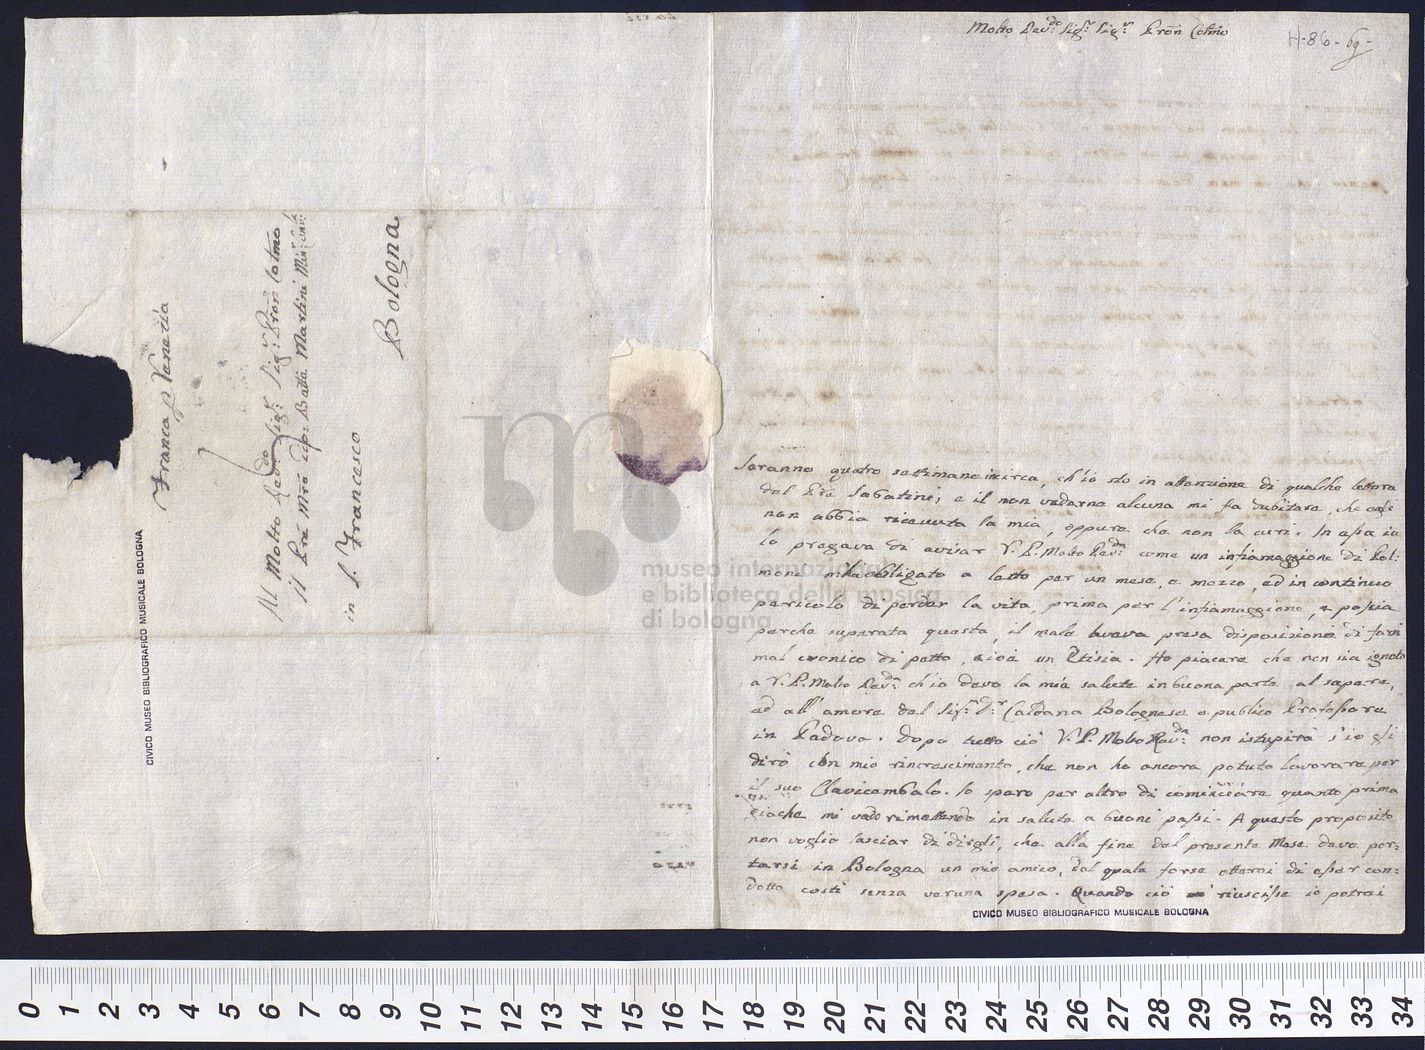 Molto Rev.do Sig.r Sig.r Pron Colmo
H-86-69-
Saranno quatro settimane incirca, ch'io sto in attenzione di qualche lettera
dal Pre Sabatini; e il non vederne alcuna mi fa dubitare, che essi
non abbia ricevuta la mia, oppure che non la curi. In essa io
lo pregava di avisar V. P. Molto Revda come un infiamaggione di Pol-
mone obbligato a letto per un mese, e mezzo, ed in continuo
pericolo di perder la vita, prima per l'infiamaggione, e possia
perche superata questa, il male aveva presa disposizione di farsi
mal cronico di petto, cioè un Etisia. Ho piacere che non sia ignoto
a V. P. Molto Revda ch'io devo la mia salute in buona parte al sapere,
ed all'amore del Sig.r D.r Caldana Bolognese e publico Professore
in Padova. Dopo tutto ciò V. P. Molto Revda non istupirà s'io gli
dirò con mio rincrescimento, che non ho ancora potuto lavorare per
il suo Clavicembalo. Io spero per altro di cominciare quanto prima
giache mi vado rimettendo in salute a buoni passi. A questo proposito
non voglio lasciar di dirgli, che alla fine del presente Mese deve por-
tarsi in Bologna un mio amico, dal quale forse otterrei di esser con-
dotto costì senza veruna spesa. Quando ciò riuscisse io potrei
CIVICO MUSEO BIBLIOGRAFICO MUSICALE BOLOGNA
Franca p Venezia
Al Molto Revdo Sig.r Sig.r Pron Colmo
Il Pre Mro Gio: Batta Martini Min.r Conv.le
in S. Francesco
Bologna
CIVICO MUSEO BIBLIOGRAFICO MUSICALE BOLOGNA
museo internazionale
e biblioteca della musica
di bologna
0 1 2 3 4 5 6 7 8 9 10 11 12 13 14 15 16 17 18 19 20 21 22 23 24 25 26 27 28 29 30 31 32 33 34